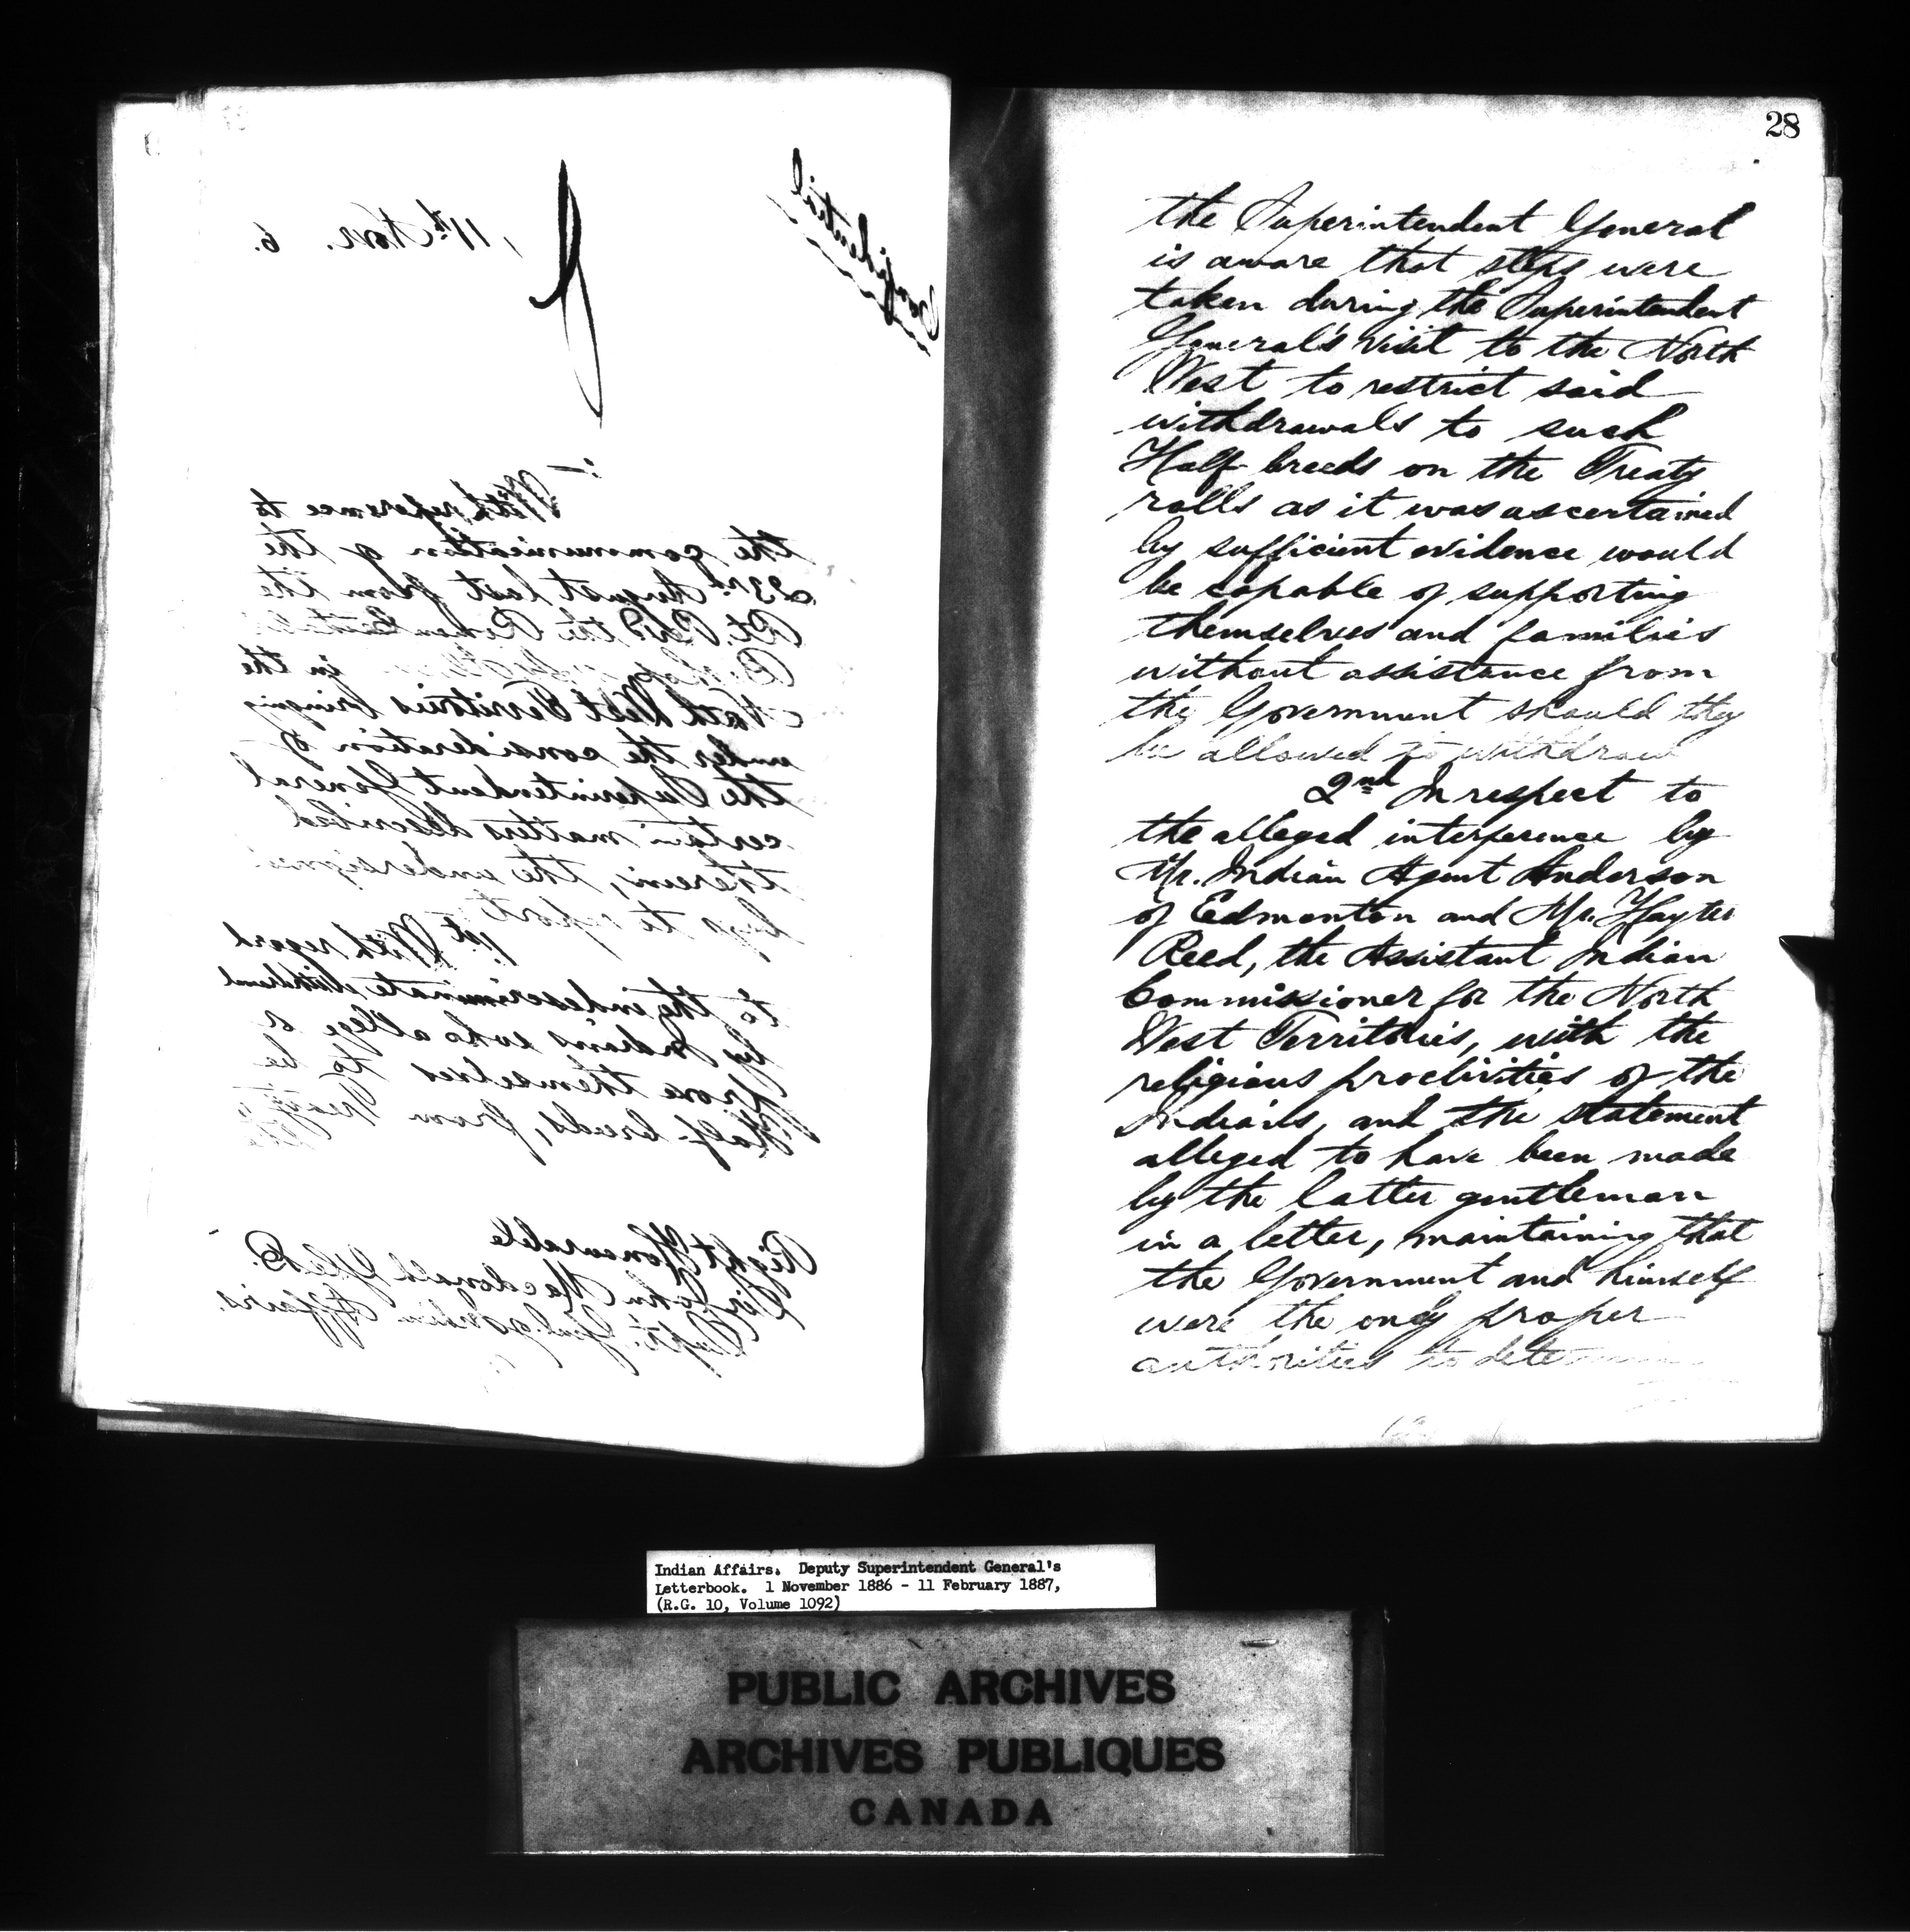 Confidential
11th Novr. 6.
:-
With reference to
the communication of the
23rd August last from the
Rt. Revd. the Roman
in the
North West Territories bringing
under the consideration of
the Superintendent General
certain matters described
therein, the undersigned
begs to report,
1st. With regard
to the indescriminate withdrawal
by Indians who allege or
prove themselves to be
Half-breeds, from Treaty,
Right Honourable
Sir John Macdonald G.C.B.
Supt. Genl. of Indian Affairs.
28
the Superintendent General
is aware that steps were
taken during the Superintendent
General's visit to the North
West to restrict said
withdrawals to such
Half-breeds on the Treaty
rolls as it was ascertained
by sufficient evidence would
be capable of supporting
themselves and families
without assistance from
the Government should they
be allowed to withdraw
2nd In respect to
the alleged interference by
Mr. Indian Agent Anderson
of Edmonton and Mr. Hayter
Reed, the Assistant Indian
Commissioner for the North
West Territories, with the
religious proclivities of the
Indians, and the statement
alleged to have been made
by the latter gentleman
in a letter, maintaining that
the Government and himself
were the only proper
authorities to determine
Indian Affairs. Deputy Superintendent General's
Letterbook. 1 November 1886 - 11 February 1887,
(R.G. 10, Volume 1092)
PUBLIC ARCHIVES
ARCHIVES PUBLIQUES
CANADA